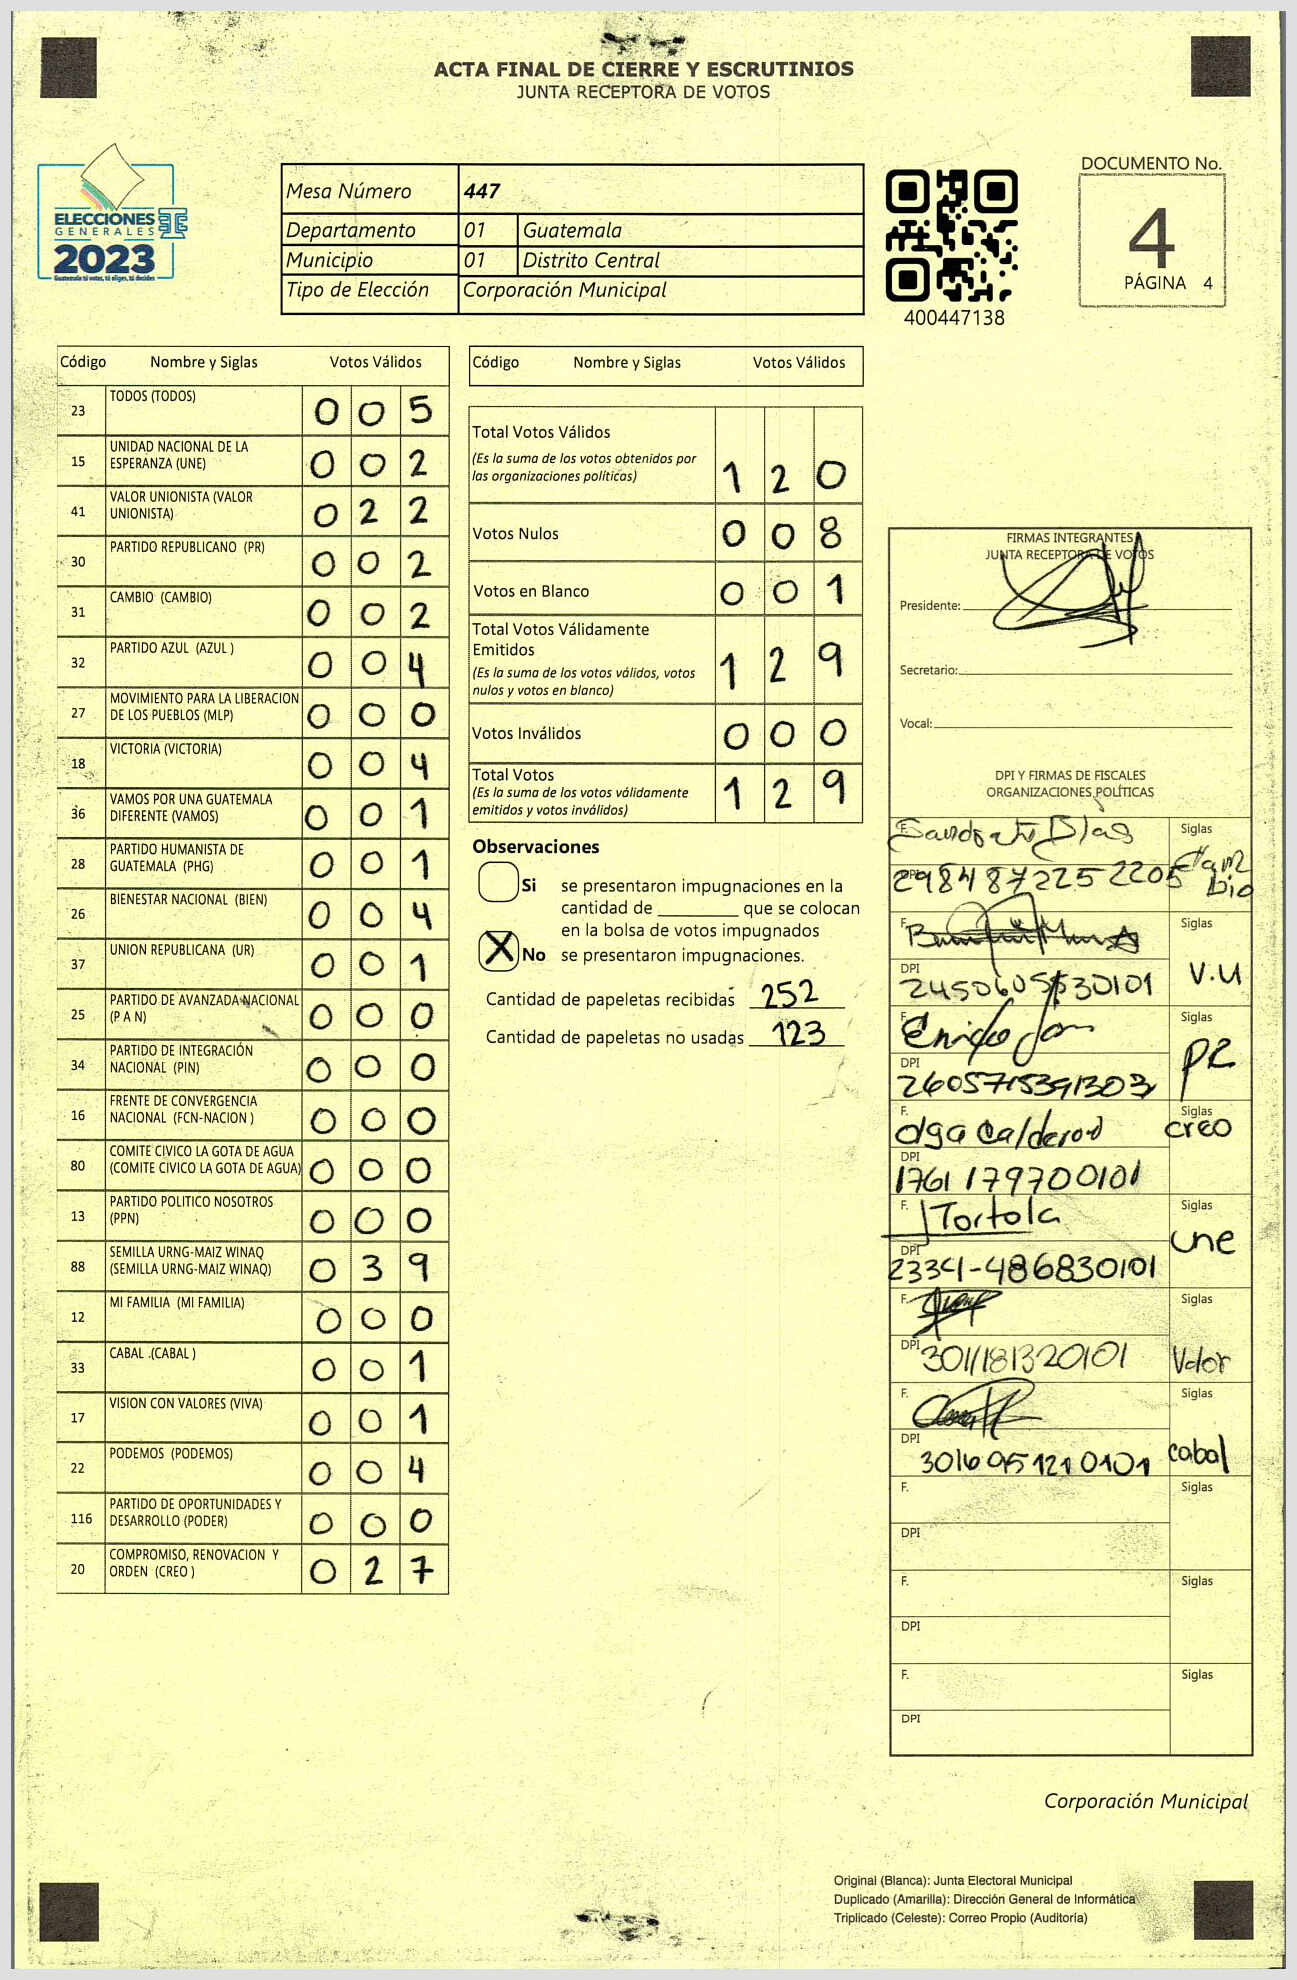 ACTA FINAL DE CIERRE Y ESCRUTINIOS
JUNTA RECEPTORA DE VOTOS
ELECCIONES
GENERALES
2023
Guatemala tú votas, tú eliges, tú decides
Mesa Número 447
Departamento 01 Guatemala
Municipio 01 Distrito Central
Tipo de Elección Corporación Municipal
400447138
DOCUMENTO No.
4
PÁGINA 4
Código Nombre y Siglas Votos Válidos
23 TODOS (TODOS) 0 0 5
15 UNIDAD NACIONAL DE LA
ESPERANZA (UNE) 0 0 2
41 VALOR UNIONISTA (VALOR
UNIONISTA) 0 2 2
30 PARTIDO REPUBLICANO (PR) 0 0 2
31 CAMBIO (CAMBIO) 0 0 2
32 PARTIDO AZUL (AZUL ) 0 0 4
27 MOVIMIENTO PARA LA LIBERACION
DE LOS PUEBLOS (MLP) 0 0 0
18 VICTORIA (VICTORIA) 0 0 4
36 VAMOS POR UNA GUATEMALA
DIFERENTE (VAMOS) 0 0 1
28 PARTIDO HUMANISTA DE
GUATEMALA (PHG) 0 0 1
26 BIENESTAR NACIONAL (BIEN) 0 0 4
37 UNION REPUBLICANA (UR) 0 0 1
25 PARTIDO DE AVANZADA NACIONAL
(P A N) 0 0 0
34 PARTIDO DE INTEGRACIÓN
NACIONAL (PIN) 0 0 0
16 FRENTE DE CONVERGENCIA
NACIONAL (FCN-NACION ) 0 0 0
80 COMITE CIVICO LA GOTA DE AGUA
(COMITE CIVICO LA GOTA DE AGUA) 0 0 0
13 PARTIDO POLITICO NOSOTROS
(PPN) 0 0 0
88 SEMILLA URNG-MAIZ WINAQ
(SEMILLA URNG-MAIZ WINAQ) 0 3 9
12 MI FAMILIA (MI FAMILIA) 0 0 0
33 CABAL .(CABAL ) 0 0 1
17 VISION CON VALORES (VIVA) 0 0 1
22 PODEMOS (PODEMOS) 0 0 4
116 PARTIDO DE OPORTUNIDADES Y
DESARROLLO (PODER) 0 0 0
20 COMPROMISO, RENOVACION Y
ORDEN (CREO ) 0 2 7
Código Nombre y Siglas Votos Válidos
Total Votos Válidos
(Es la suma de los votos obtenidos por
las organizaciones políticas) 1 2 0
Votos Nulos 0 0 8
Votos en Blanco 0 0 1
Total Votos Válidamente
Emitidos
(Es la suma de los votos válidos, votos
nulos y votos en blanco) 1 2 9
Votos Inválidos 0 0 0
Total Votos
(Es la suma de los votos válidamente
emitidos y votos inválidos) 1 2 9
Observaciones
Si se presentaron impugnaciones en la
cantidad de ________ que se colocan
en la bolsa de votos impugnados
X No se presentaron impugnaciones.
Cantidad de papeletas recibidas 252
Cantidad de papeletas no usadas 123
FIRMAS INTEGRANTES
JUNTA RECEPTORA DE VOTOS
Presidente:
Secretario:
Vocal:
DPI Y FIRMAS DE FISCALES
ORGANIZACIONES POLÍTICAS
F. Blas Siglas
DPI 2984872252205 Cambio
F. Siglas
DPI V.U
F. Siglas
DPI PR
F. Olga Calderon Siglas creo
DPI 1761179700101
F. J Tortola Siglas
DPI une
F. Siglas
DPI 3011181320101 Valor
F. Siglas
DPI cabal
F. Siglas
DPI
F. Siglas
DPI
F. Siglas
DPI
Corporación Municipal
Original (Blanca): Junta Electoral Municipal
Duplicado (Amarilla): Dirección General de Informática
Triplicado (Celeste): Correo Propio (Auditoría)